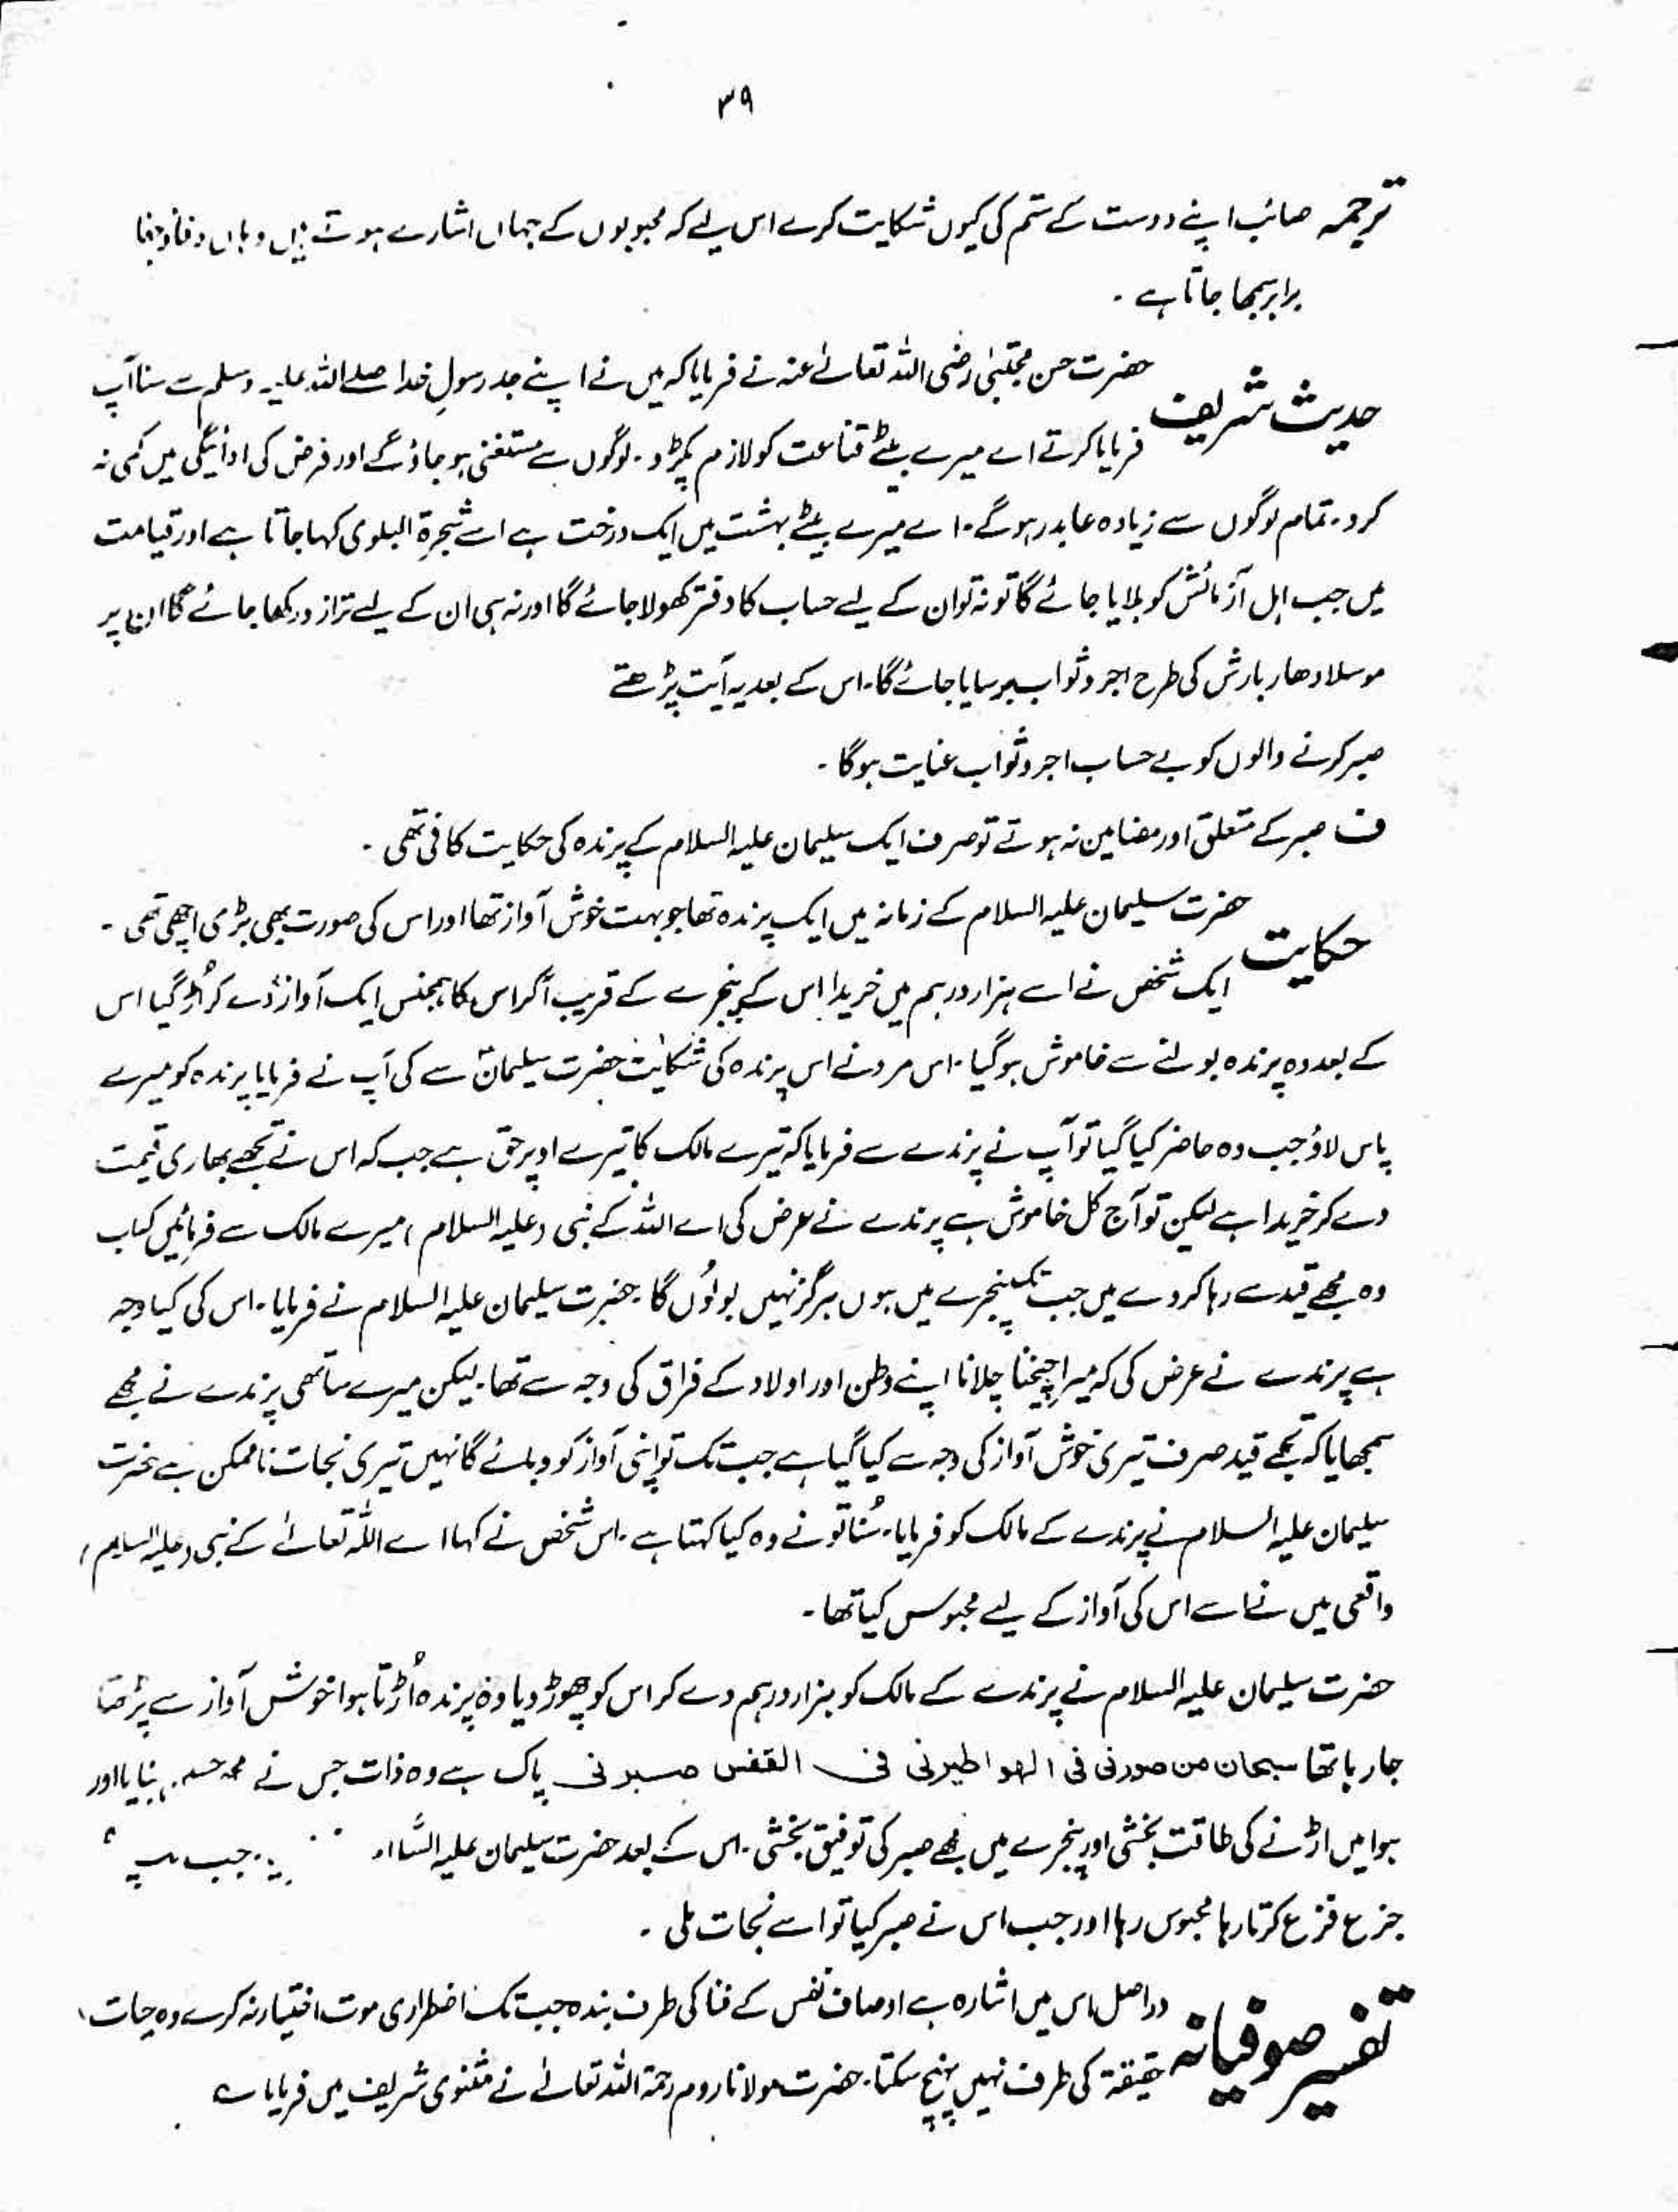 ۳۹
ترجمہ صائب اپنے دوست کے ستم کی کیوں شکایت کرے اس لیے کہ محبوبوں کے جہاں اشارے ہوتے ہیں وہاں وفا وجفا
برابر سمجھا جاتا ہے ۔
حدیث شریف حضرت حسن مجتبیٰ رضی اللہ تعالےٰ عنہ نے فرمایا کہ میں نے اپنے جد رسولِ خدا صلے اللہ علیہ وسلم سے سنا آپ
فرمایا کرتے اے میرے بیٹے قناعت کو لازم پکڑو ۔ لوگوں سے مستغنی ہو جاؤ گے اور فرض کی ادائیگی میں کمی نہ
کرو ۔ تمام لوگوں سے زیادہ عابد رہو گے ۔ اے میرے بیٹے بہشت میں ایک درخت ہے اسے شجرۃ البلوی کہا جاتا ہے اور قیامت
میں جب اہل آزمائش کو بلایا جائے گا تو نہ توان کے لیے حساب کا دفتر کھولا جائے گا اور نہ ہی ان کے لیے ترازو رکھا جائے گا ان پر
موسلا دھار بارش کی طرح اجر و ثواب برسایا جائے گا ۔ اس کے بعد یہ آیت پڑھتے
صبر کرنے والوں کو بے حساب اجر و ثواب عنایت ہوگا ۔
ف صبر کے متعلق اور مضامین نہ ہوتے تو صرف ایک سلیمان علیہ السلام کے پرندہ کی حکایت کافی تھی ۔
حکایت حضرت سلیمان علیہ السلام کے زمانہ میں ایک پرندہ تھا جو بہت خوش آواز تھا اور اس کی صورت بھی بڑی اچھی تھی ۔
ایک شخص نے اسے ہزار درہم میں خریدا اس کے پنجرے کے قریب آکر اس کا ہمجنس ایک آواز دے کر اُڑ گیا اس
کے بعد وہ پرندہ بولنے سے خاموش ہو گیا ۔ اس مرد نے اس پرندہ کی شکایت حضرت سلیمانؑ سے کی آپ نے فرمایا پرندہ کو میرے
پاس لاؤ جب وہ حاضر کیا گیا تو آپ نے پرندے سے فرمایا کہ تیرے مالک کا تیرے اوپر حق ہے جب کہ اس نے تجھے بھاری قیمت
دے کر خریدا ہے لیکن تو آج کل خاموش ہے پرندے نے عرض کی اے اللہ کے نبی (علیہ السلام) میرے مالک سے فرمائیں کہ اب
وہ مجھے قید سے رہا کر دے میں جب تک پنجرے میں ہوں ہرگز نہیں بولوں گا ۔ حضرت سلیمان علیہ السلام نے فرمایا ۔ اس کی کیا وجہ
ہے پرندے نے عرض کی کہ میرا چیخنا چلانا اپنے وطن اور اولاد کے فراق کی وجہ سے تھا ۔ لیکن میرے ساتھی پرندے نے مجھے
سمجھایا کہ تجھے قید صرف تیری خوش آواز کی وجہ سے کیا گیا ہے جب تک تو اپنی آواز کو دبائے گا نہیں تیری نجات ناممکن ہے حضرت
سلیمان علیہ السلام نے پرندے کے مالک کو فرمایا ۔ سُنا تو نے وہ کیا کہتا ہے ۔ اس شخص نے کہا اے اللہ تعالےٰ کے نبی (علیہ السلام)
واقعی میں نے اسے اس کی آواز کے لیے محبوس کیا تھا ۔
حضرت سلیمان علیہ السلام نے پرندے کے مالک کو ہزار درہم دے کر اس کو چھوڑ دیا وہ پرندہ اُڑتا ہوا خوش آواز سے پڑھتا
جا رہا تھا سبحان من صورنی فی الهوا طیرنی فی القفس صبرنی پاک ہے وہ ذات جس نے مجھے بنایا اور
ہوا میں اڑنے کی طاقت بخشی اور پنجرے میں مجھے صبر کی توفیق بخشی ۔ اس کے بعد حضرت سلیمان علیہ السّلام جب
جزع فزع کرتا رہا محبوس رہا اور جب اس نے صبر کیا تو اسے نجات ملی ۔
تفسیر صوفیانہ دراصل اس میں اشارہ ہے اوصاف نفس کے فنا کی طرف بندہ جب تک اضطراری موت اختیار نہ کرے وہ حیات
حقیقۃ کی طرف نہیں پہنچ سکتا ۔ حضرت مولانا روم رحمۃ اللہ تعالےٰ نے مثنوی شریف میں فرمایا ؎